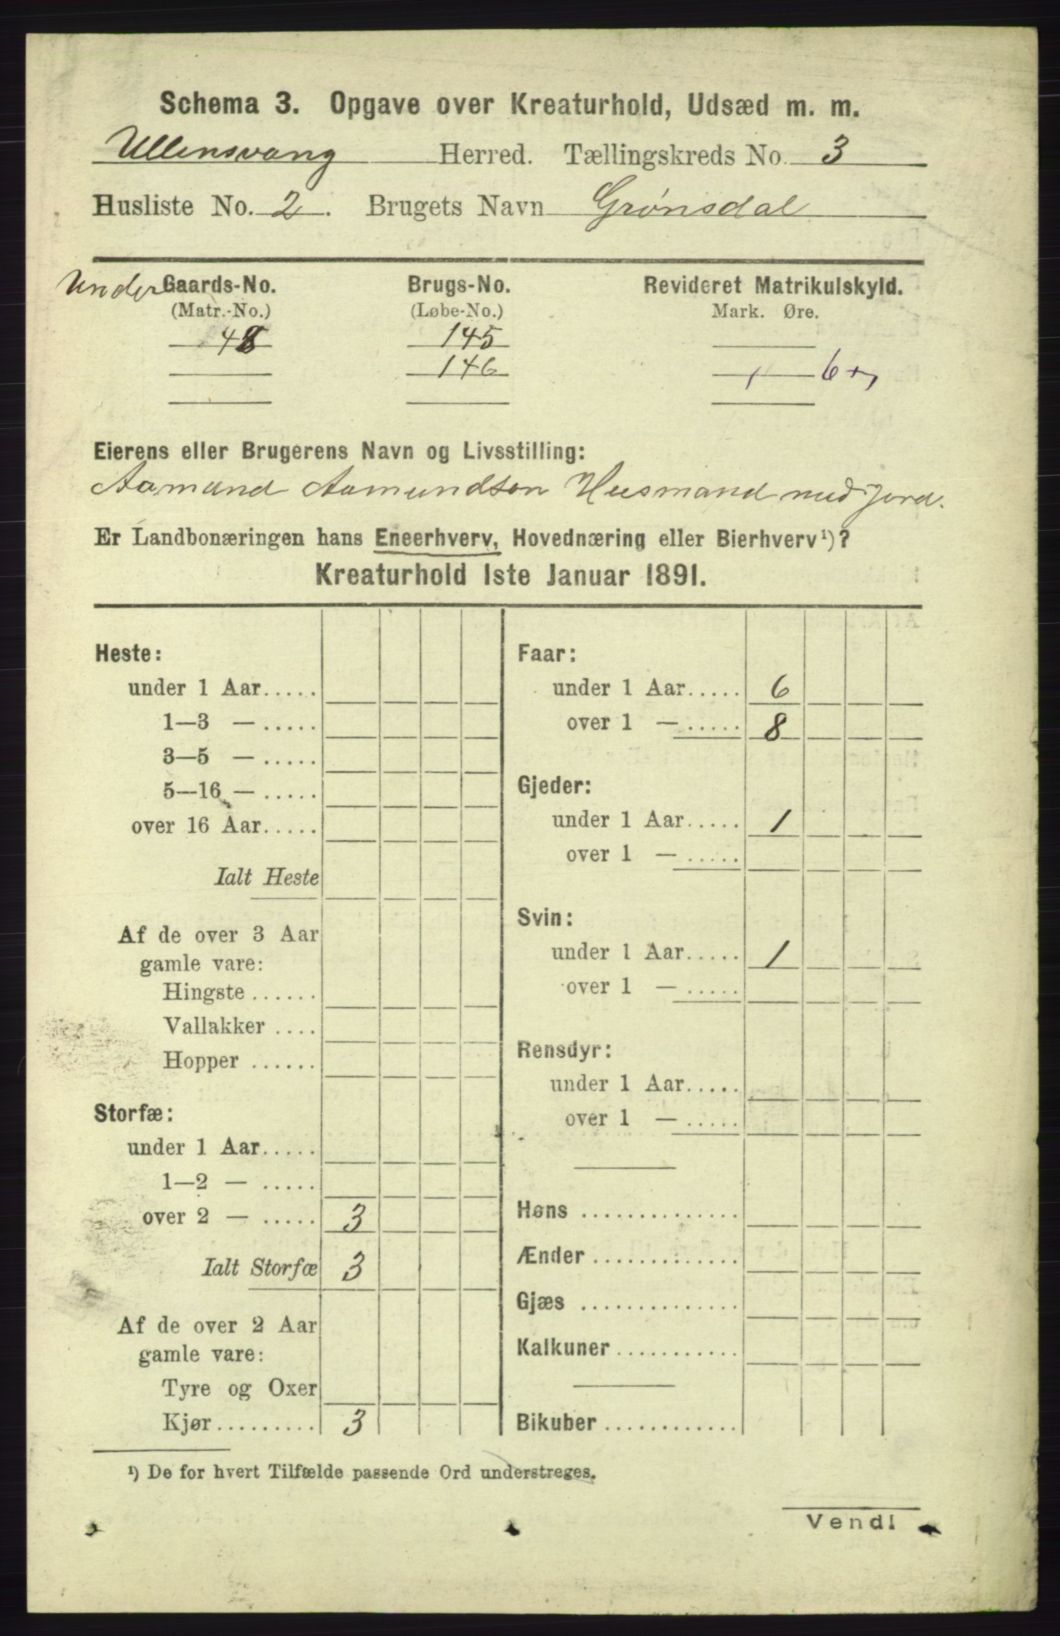 Schema 3. Opgave over Kreaturhold, Udsæd m. m.
Ullensvang Herred. Tællingskreds No. 3
Husliste No. 2. Brugets Navn Grønsdal
Under Gaards-No. Brugs-No. Revideret Matrikulskyld.
(Matr.-No.) (Løbe-No.) Mark. Øre.
48 145
146
Eierens eller Brugerens Navn og Livsstilling:
Aamund Aamundsen Husmand med jord.
Er Landbonæringen hans Eneerhverv, Hovednæring eller Bierhverv¹)?
Kreaturhold 1ste Januar 1891.
Heste:
under 1 Aar.....
1—3 — .....
3—5 — .....
5—16 — .....
over 16 Aar.....
Ialt Heste
Af de over 3 Aar
gamle vare:
Hingste ......
Vallakker ....
Hopper ......
Storfæ:
under 1 Aar.....
1—2 — .....
over 2 — ..... 3
Ialt Storfæ 3
Af de over 2 Aar
gamle vare:
Tyre og Oxer
Kjør......... 3
Faar:
under 1 Aar..... 6
over 1 — ..... 8
Gjeder:
under 1 Aar..... 1
over 1 — .....
Svin:
under 1 Aar..... 1
over 1 — .....
Rensdyr:
under 1 Aar.....
over 1 — .....
Høns ..............
Ænder .............
Gjæs ..............
Kalkuner...........
Bikuber ............
¹) De for hvert Tilfælde passende Ord understreges.
Vend!